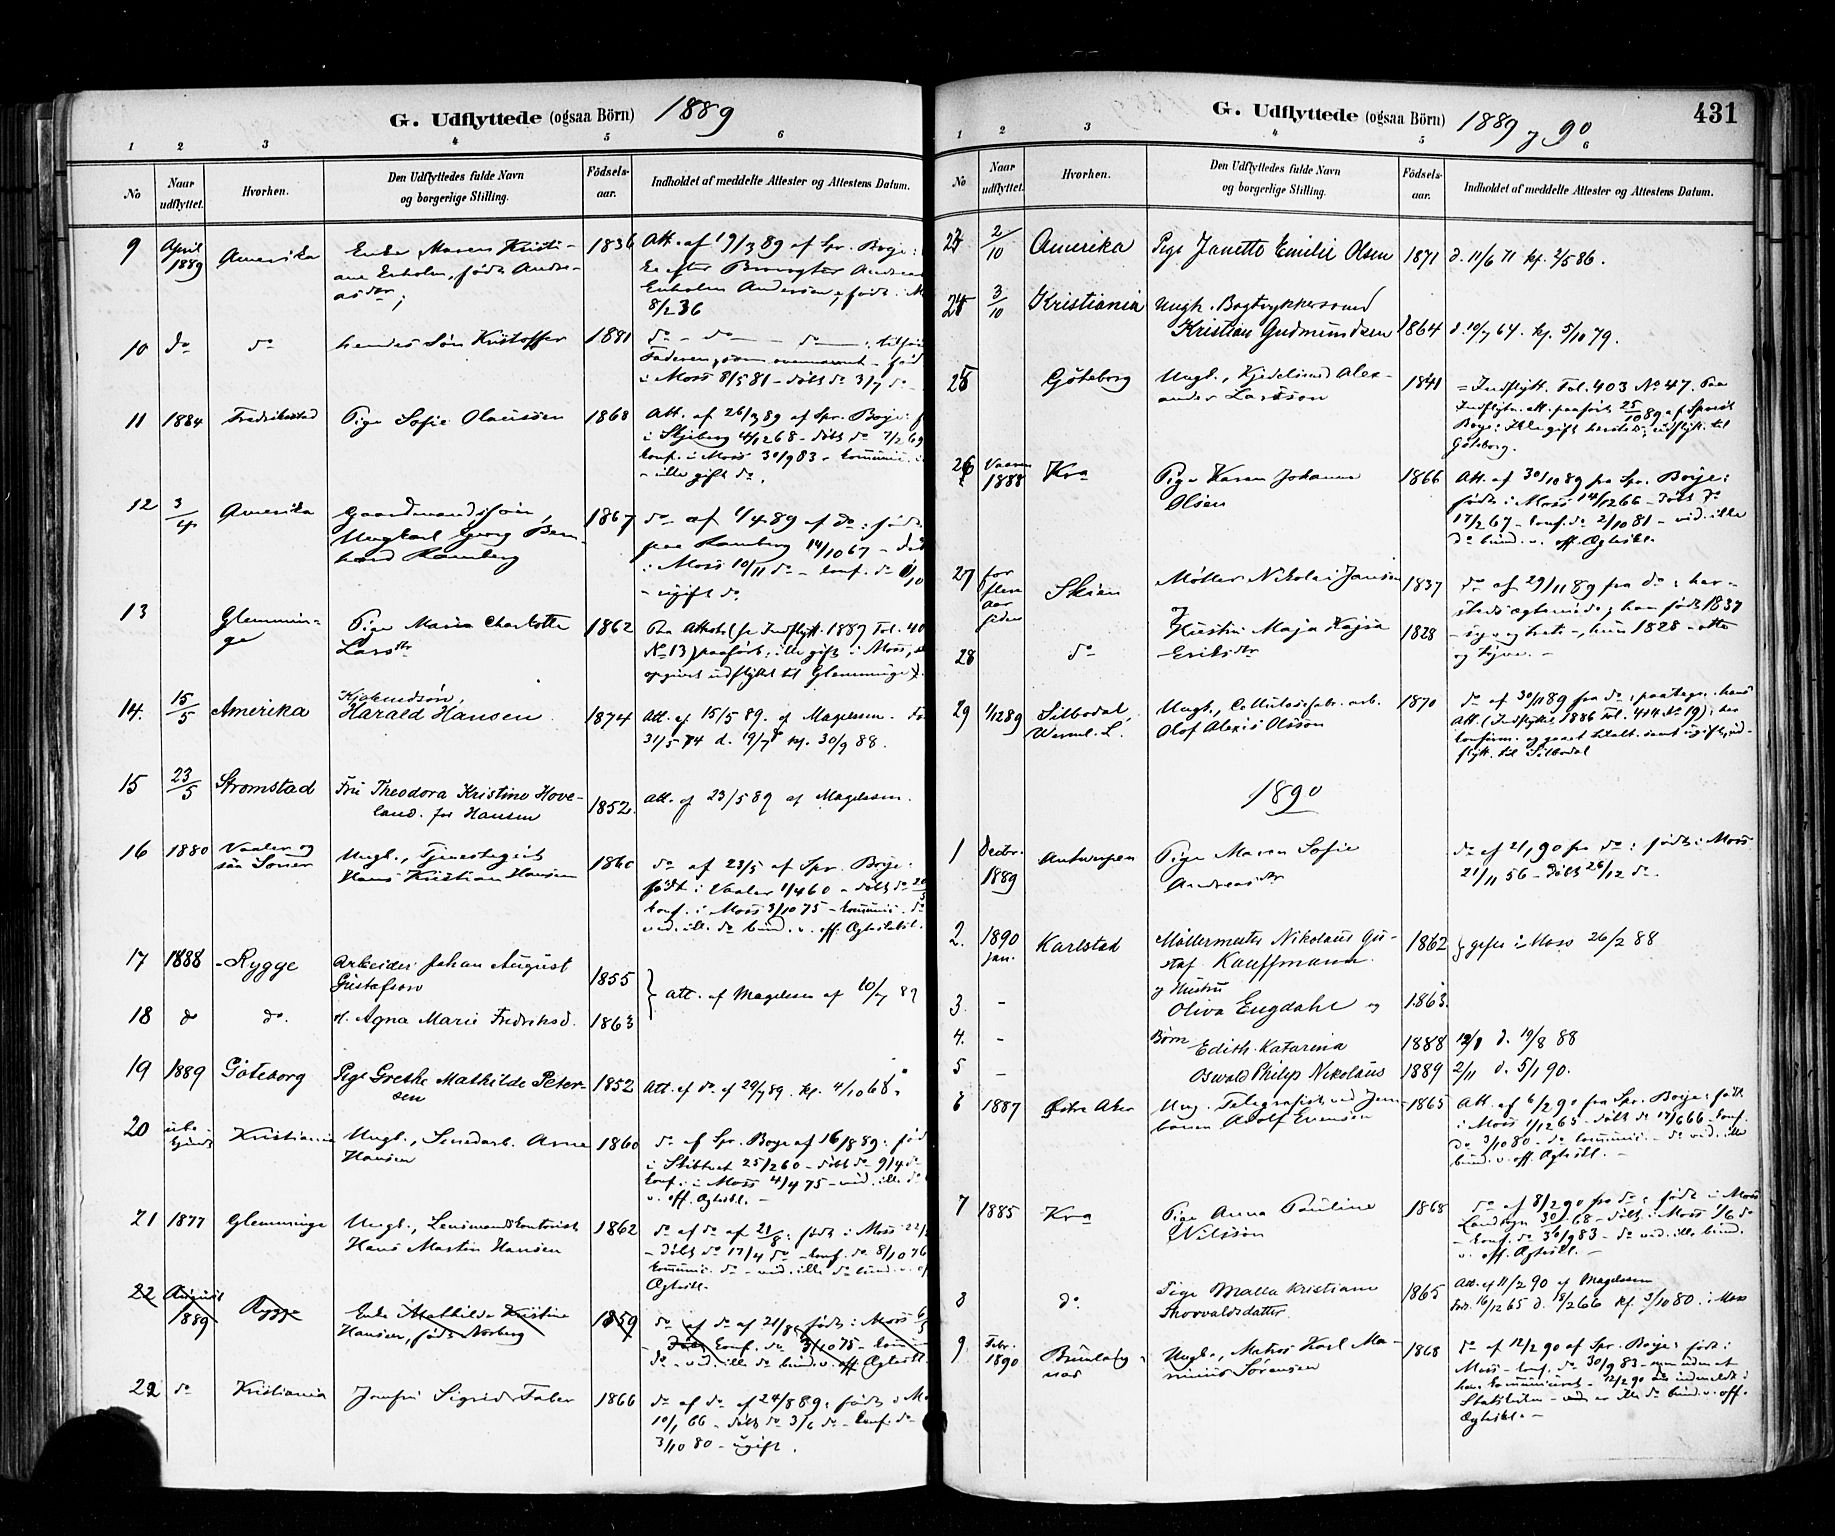 G. Udflyttede (ogsaa Börn) 1889
1 2 3 4 5 6
No
Naar udflyttet.
Hvorhen.
Den Udflyttedes fulde Navn og borgerlige Stilling.
Födsels-aar.
Indholdet af meddelte Attester og Attestens Datum.
9 April 1889 Amerika Enke Maren Kristi- 1836 Att. af 19/3 89 af Spr. Boje:
ane Enholm, født Andre-
asdtr;
Enholm Andersen, født i M
8/2 36
10 do do hendes Søn Kristoffer 1881 do - do - do
Faderen, som ovennævnt - fød
i Moss 8/5 81 - døbt do 3/7 do -
11 1884 Fredrikstad Pige Sofie Olaussen 1868 Att. af 26/3 89 af Spr. Boje:
i Skjeberg 4/12 68 - døbt do 7/2 69
konf. i Moss 30/9 83 - kommuni.
- ikke gift do.
12 3/4 Amerika Gaardmandssøn, 1867 do af 1/4 89 af do: født
Ungkarl Georg Bern- paa Ramberg 14/10 67 - døbt
hard Ramberg i Moss 10/11 do - konf. do
- ugift do
13 Glemmin- Pige Maria Charlotte 1862 Paa Attest (se Indflytt. 1889 Fol. 40
ge Larsdtr No 13) paaført: ikke gift i Moss,
opgivet udflyttet til Glemminge).
14. 15/5 Amerika Harald Hansen 1874 Att. af 15/5 89. af Magelssen.
31/5 74 d. 19/7 kf. 30/9 88.
15 23/5 Strømstad Fru Theodora Kristine Hove- 1852. Att. af 23/5 89 af Magelssen.
land. før Hansen
16 1880 Vaaler og Ungk., Tjenestegut 1860 do af 23/5 af Spr. Boje.
saa Soner Hans Kristian Hansen født i Vaaler 1/4 60 - døbt do
konf. i Moss 3/10 75 - kommuni. do
ved. ikke do bund. v. off. Ægteskl.
17 1888 Rygge Arbeider Johan August 1855 } Att. af Magelssen af 10/7 89
Gustafson
18 do do. H. Agna Marie Fredriksd. 1863
19 1889 Göteborg Pige Grethe Mathilde Peter- 1852 Att. af do af 29/7 89. kf. 4/10 68.
sen
20 ube- Kristiania Ungk., Arne 1860 do af Spr. Boje af 16/8 89: fød
kjendt Hansen i Skibtvet 25/2 60 - døbt do 9/4 do
konf. i Moss 4/4 75 - ved. ikke do
v. off. Ægteskl. -
21 1877 Glemminge Ungk., Lensmandskontorist 1862 do af do af 21/8: født i Moss
Hans Martin Hansen - døbt do 17/4 do - konf. do 8/10 76
kommuni. do - ved. ikke do bund. v. off.
Ægteskl.
22 August 1889 Rygge Enke Mathilde Kristine 1859 do af do af 21/8: født i Moss
Hansen, født Norberg Døbt Konf. do 3/10 75 - kom
do - ved. ikke do bund. v. off. Ægteskl.
22 do Kristiania Jomfru Sigrid Faber 1866 do af do af 24/8 89: født i Mo
10/1 66 - døbt do 3/6 do - konf. do
3/10 80 - ugift.
G. Udflyttede (ogsaa Börn) 1889 og 90
431
1 2 3 4 5 6
No
Naar udflyttet.
Hvorhen.
Den Udflyttedes fulde Navn og borgerlige Stilling.
Födsels-aar.
Indholdet af meddelte Attester og Attestens Datum.
23 2/10 Amerika Pige Janette Emilie Olsen 1871 d. 11/6 71 kf. 2/5 86.
24 3/10 Kristiania Ungk. Bogtrykkersvend
Kristian Gudmundsen 1864 d. 10/7 64. kf. 5/10 79.
25 Göteborg Ungk., Kjedelsmed Alex- 1841 = Indflytt. Fol. 403 No 47. Paa
ander Larsson Indflytn. att. paaført 25/10 89 af Spr.
Boje: Ikke gift hersteds, udflytt. til
Göteborg.
26 Vaaren 1888 Kra Pige Karen Johanne 1866 Att. af 30/10 89 fra Spr. Boje:
Olsen født i Moss 14/12 66 - døbt do
17/2 67 - konf. do 2/10 81 - ved. ikke
do bund. v. off. Ægteskl.
27 for flere Aar siden Skien Møller Nikolai Jansen 1837 do af 29/11 89 fra do: her-
og steds ægteviede; han født 1837
28 do Hustru Maja Kajsa 1828 - syv og treti -, hun 1828 - otte
Eriksdtr og tyve. -
29 1/12 89 Silbodal Ungk., Cellulosefabr. arb. 1870 do af 30/11 89 fra do: paategn. hans
Werml. L. Olof Alexis Olsson Att. (Indflyttet 1886 Fol. 414 No 19): her
konfirm. og ugift, ud-
flytt. til Silbodal
1890
1 Decbr. 1889 Antwerpen Pige Maren Sofie do af 2/1 90 fra do: født i Moss
Andreasdtr 21/11 56 - døbt 26/12 do.
2. 1890 jan. Karlstad Møllermester Nikolaus Gu- 1862 } gifte i Moss 26/2 88
staf Kauffmann.
og Hustru
3. - Oliva Engdahl og 1863
4. - Børn Edith Katarina 1888 12/7 d. 19/8 88
5 - Oswald Philip Nikolaus 1889 2/11 d. 5/1 90.
6 1887 Østre Aker Ung. Telegrafist ved Jern- 1865 Att. af 6/2 90 fra Spr. Boje: født
banen Adolf Evensen i Moss 1/12 65 - døbt do 17/6 66 - konf.
do 3/10 80 - do kommuni. - do ved. ikke
bund. v. off. Ægteskl. -
7 1885 Kra Pige Anna Pauline 1868 do af 8/2 90 fra do: født i Moss
Nilsson Landsogn 30/ 68 - døbt i Moss 1/6 do
- konf. do 30/9 83 - do ved. ikke bund.
v. off. Ægteskl. -
8 do Pige Malla Kristiane 1865 Att. af 11/2 90 af Magelssen
Thorvaldsdatter. Født 16/12 65 d. 18/2 66 kf. 3/10 80. i Moss
9. Febr. 1890 Brunlanæs Ungk., Matros Karl Ma- 1868 do af 12/2 90 af Spr. Boje: født i
rinius Sørensen Moss - konf. do 30/9 83 -
have kommuniceret - 12/2 90 indmeldt i
Statskirken - ved. er ikke do bund. v. off.
Ægteskl. -